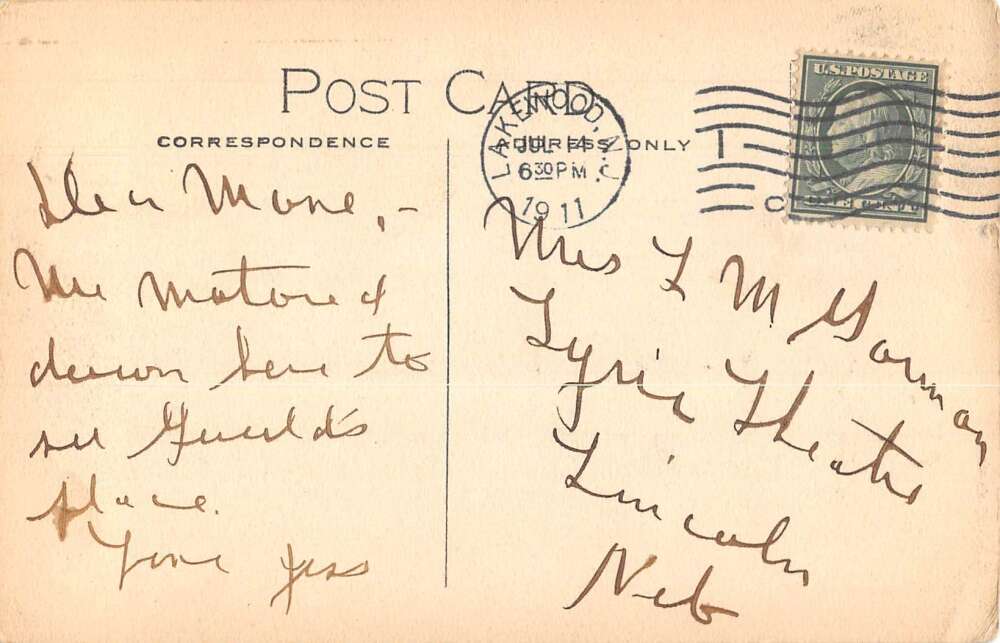 POST CARD
CORRESPONDENCE
ADDRESS ONLY
LAKEWOOD, N.J.
JUL 14
6 30 PM
1911
1
U.S. POSTAGE
Dear
We motored
down here to
see Gould's
place.
Jess
Mrs L M Gorman
Lyric Theatre
Lincoln
Neb